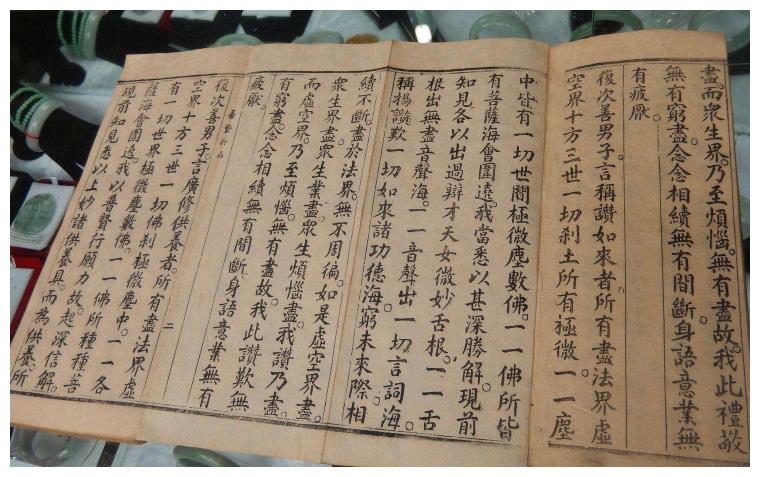 盡。而衆生界。乃至煩惱。無有盡故。我此禮敬
無有窮盡。念念相續。無有間斷。身語意業。無
有疲厭。
復次善男子。言稱讚如來者。所有盡法界虚
空界十方三世一切刹土所有極微。一一塵
中。皆有一切世間極微塵數佛。一一佛所。皆
有菩薩海會圍遶。我當悉以甚深勝解。現前
知見。各以出過辯才天女微妙舌根。一一舌
根。出無盡音聲海。一一音聲。出一切言詞海。
稱揚讚歎一切如來諸功德海。窮未來際。相
續不斷。盡於法界。無不周徧。如是虚空界盡。
衆生界盡。衆生業盡。衆生煩惱盡。我讚乃盡。
而虚空界。乃至煩惱。無有盡故。我此讚歎。無
有窮盡。念念相續。無有間斷。身語意業。無有
疲厭。
普賢行品 二
復次善男子。言廣修供養者。所有盡法界虚
空界十方三世一切佛刹極微塵中。一一各
有一切世界極微塵數佛。一一佛所。種種菩
薩海會圍遶。我以普賢行願力故。起深信解。
現前知見。悉以上妙諸供養具。而為供養。所